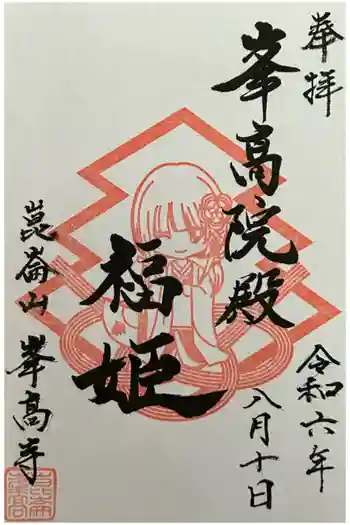 奉拝
峯高院殿
福姫
令和六年
八月十日
崑崙山
峯高寺